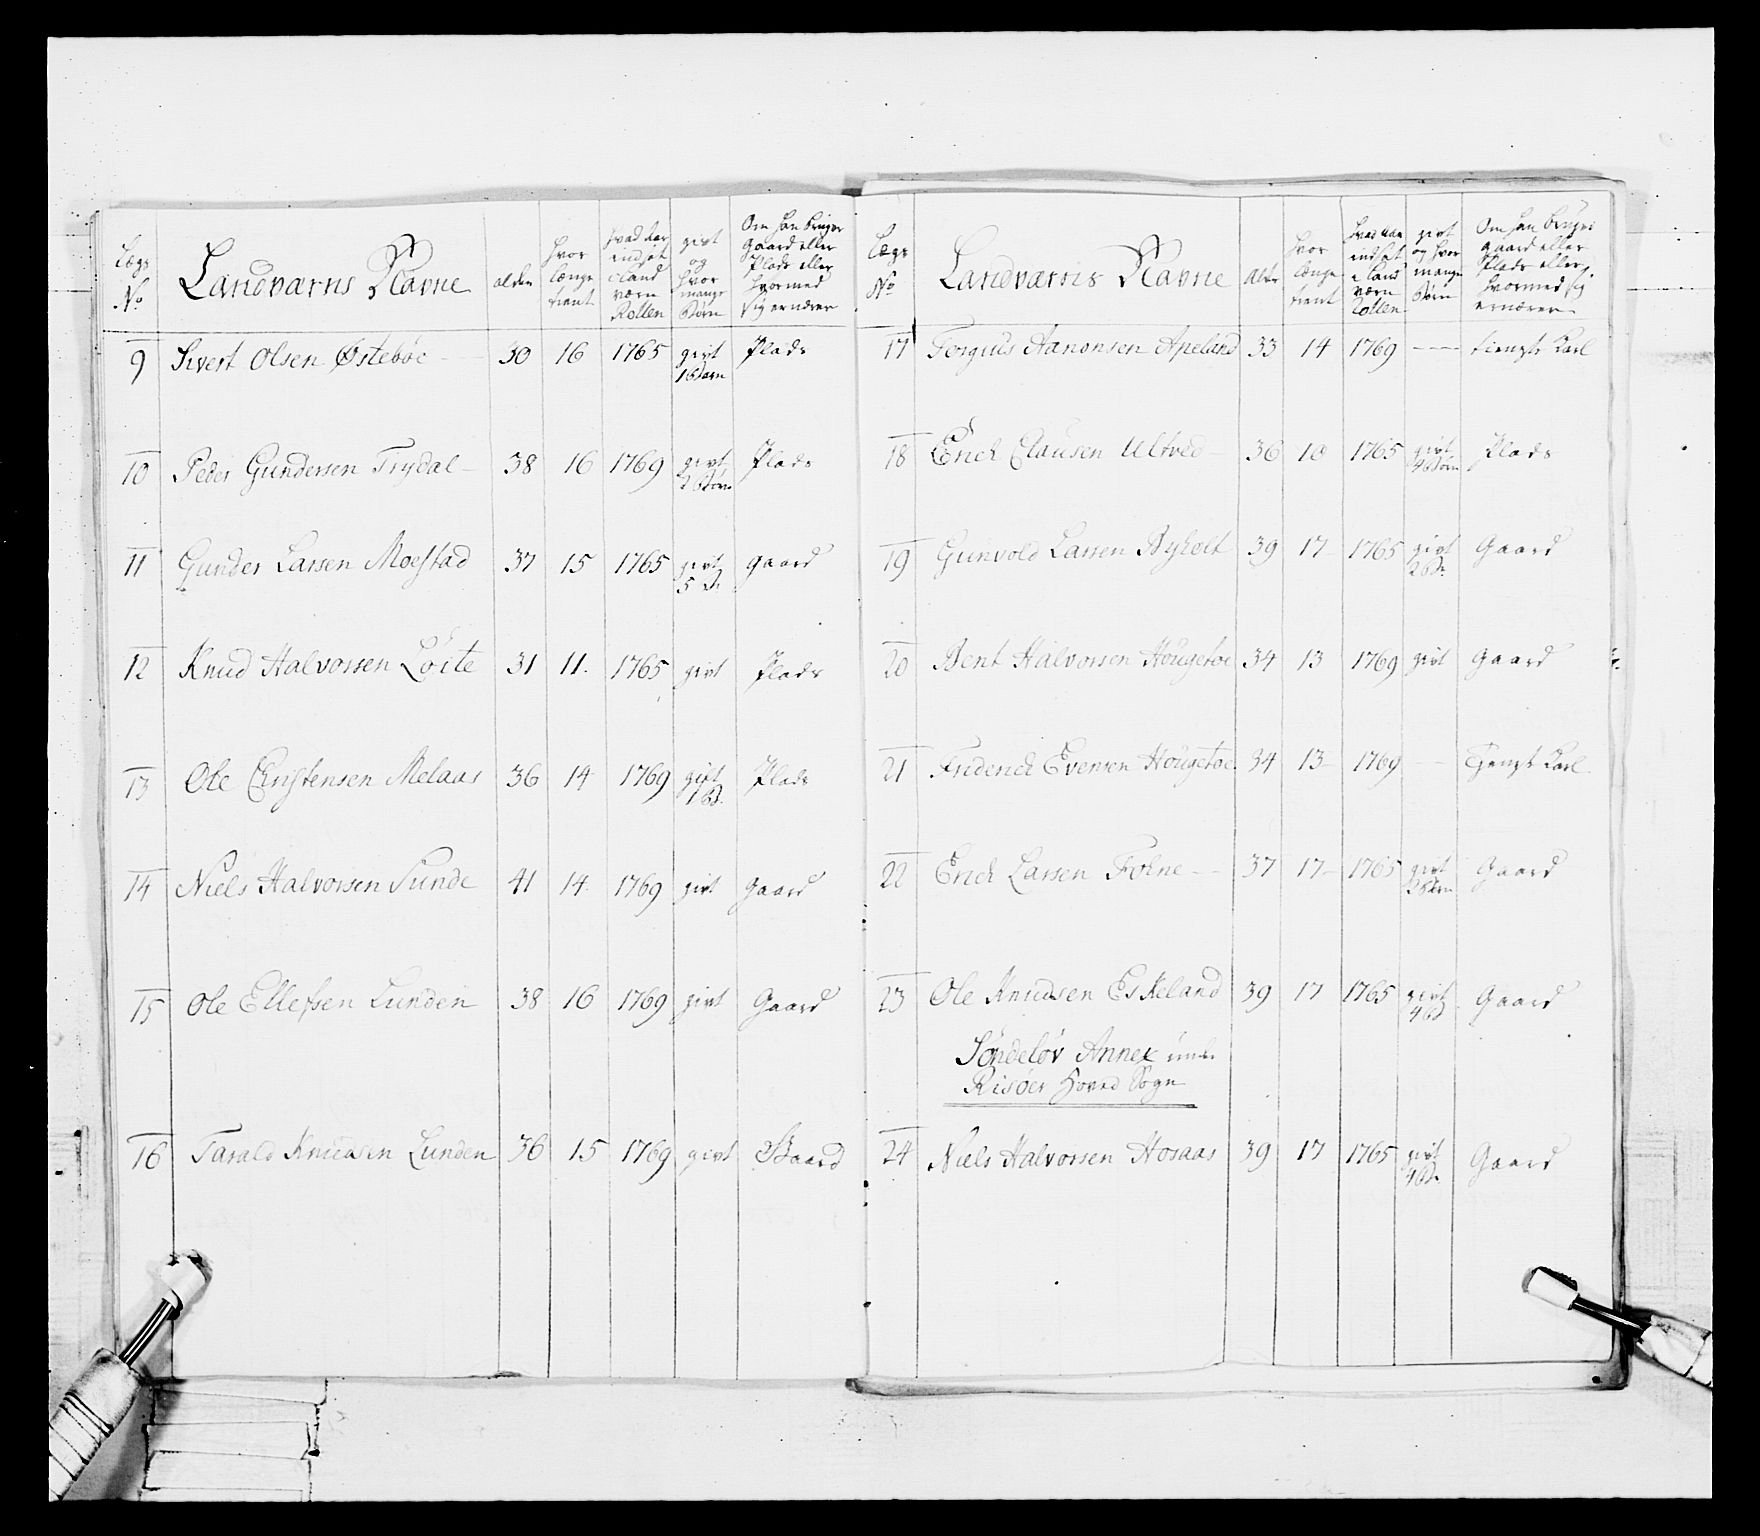 Lægs No | Landværns Navne | alder | hvor længe tient | hvad Aar indsat i Land værn Rollen | givt og hvor mange Børn | Om han bruger gaard eller Plads eller hvormed sig ernærer
9 Sivert Olsen Østebøe — 30 16 1765 givt 1 Barn Plads
10 Peder Gundersen Trydal — 38 16 1769 givt 2 Børn Plads
11 Gunder Larsen Moestad 37 15 1765 givt 5 d. Gaard
12 Knud Halvorsen Löite 31 11. 1765 givt Plads
13 Ole Christensen Melaas 36 14 1769 givt 1 B. Plads
14 Niels Halvorsen Sunde 41 14 1769 givt Gaard
15 Ole Ellefsen Lunden 38 16 1769 givt Gaard
16 Tarald Knudsen Lunden 36 15 1769 givt Gaard
Lægs No | Landværns Navne | alder | hvor længe tient | hvad Aar indsat i Land værn Rollen | givt og hvor mange Børn | Om han bruger gaard eller Plads eller hvormed sig ernærer
17 Torguls Aanonsen Apeland 33 14 1769 — tienste Karl
18 Erich Clausen Ultved 36 10 1765 givt 4 Børn Plads
19 Gunvold Larsen Byholt 39 17 1765 givt 2 B. Gaard
20 Bent Halvorsen Hougetoe 34 13 1769 givt Gaard
21 Friderich Evensen Hougetoe 34 13 1769 — Tienste Karl
22 Erich Larsen Folne — 37 17 1765 givt 2 Børn Gaard
23 Ole Knudsen Eskeland 39 17 1765 givt 4 B Gaard
Söndelöv Annex under
Risöer Hoved Sogn
24 Niels Halvorsen Hosaas 39 17 1765 givt 4 B. Gaard